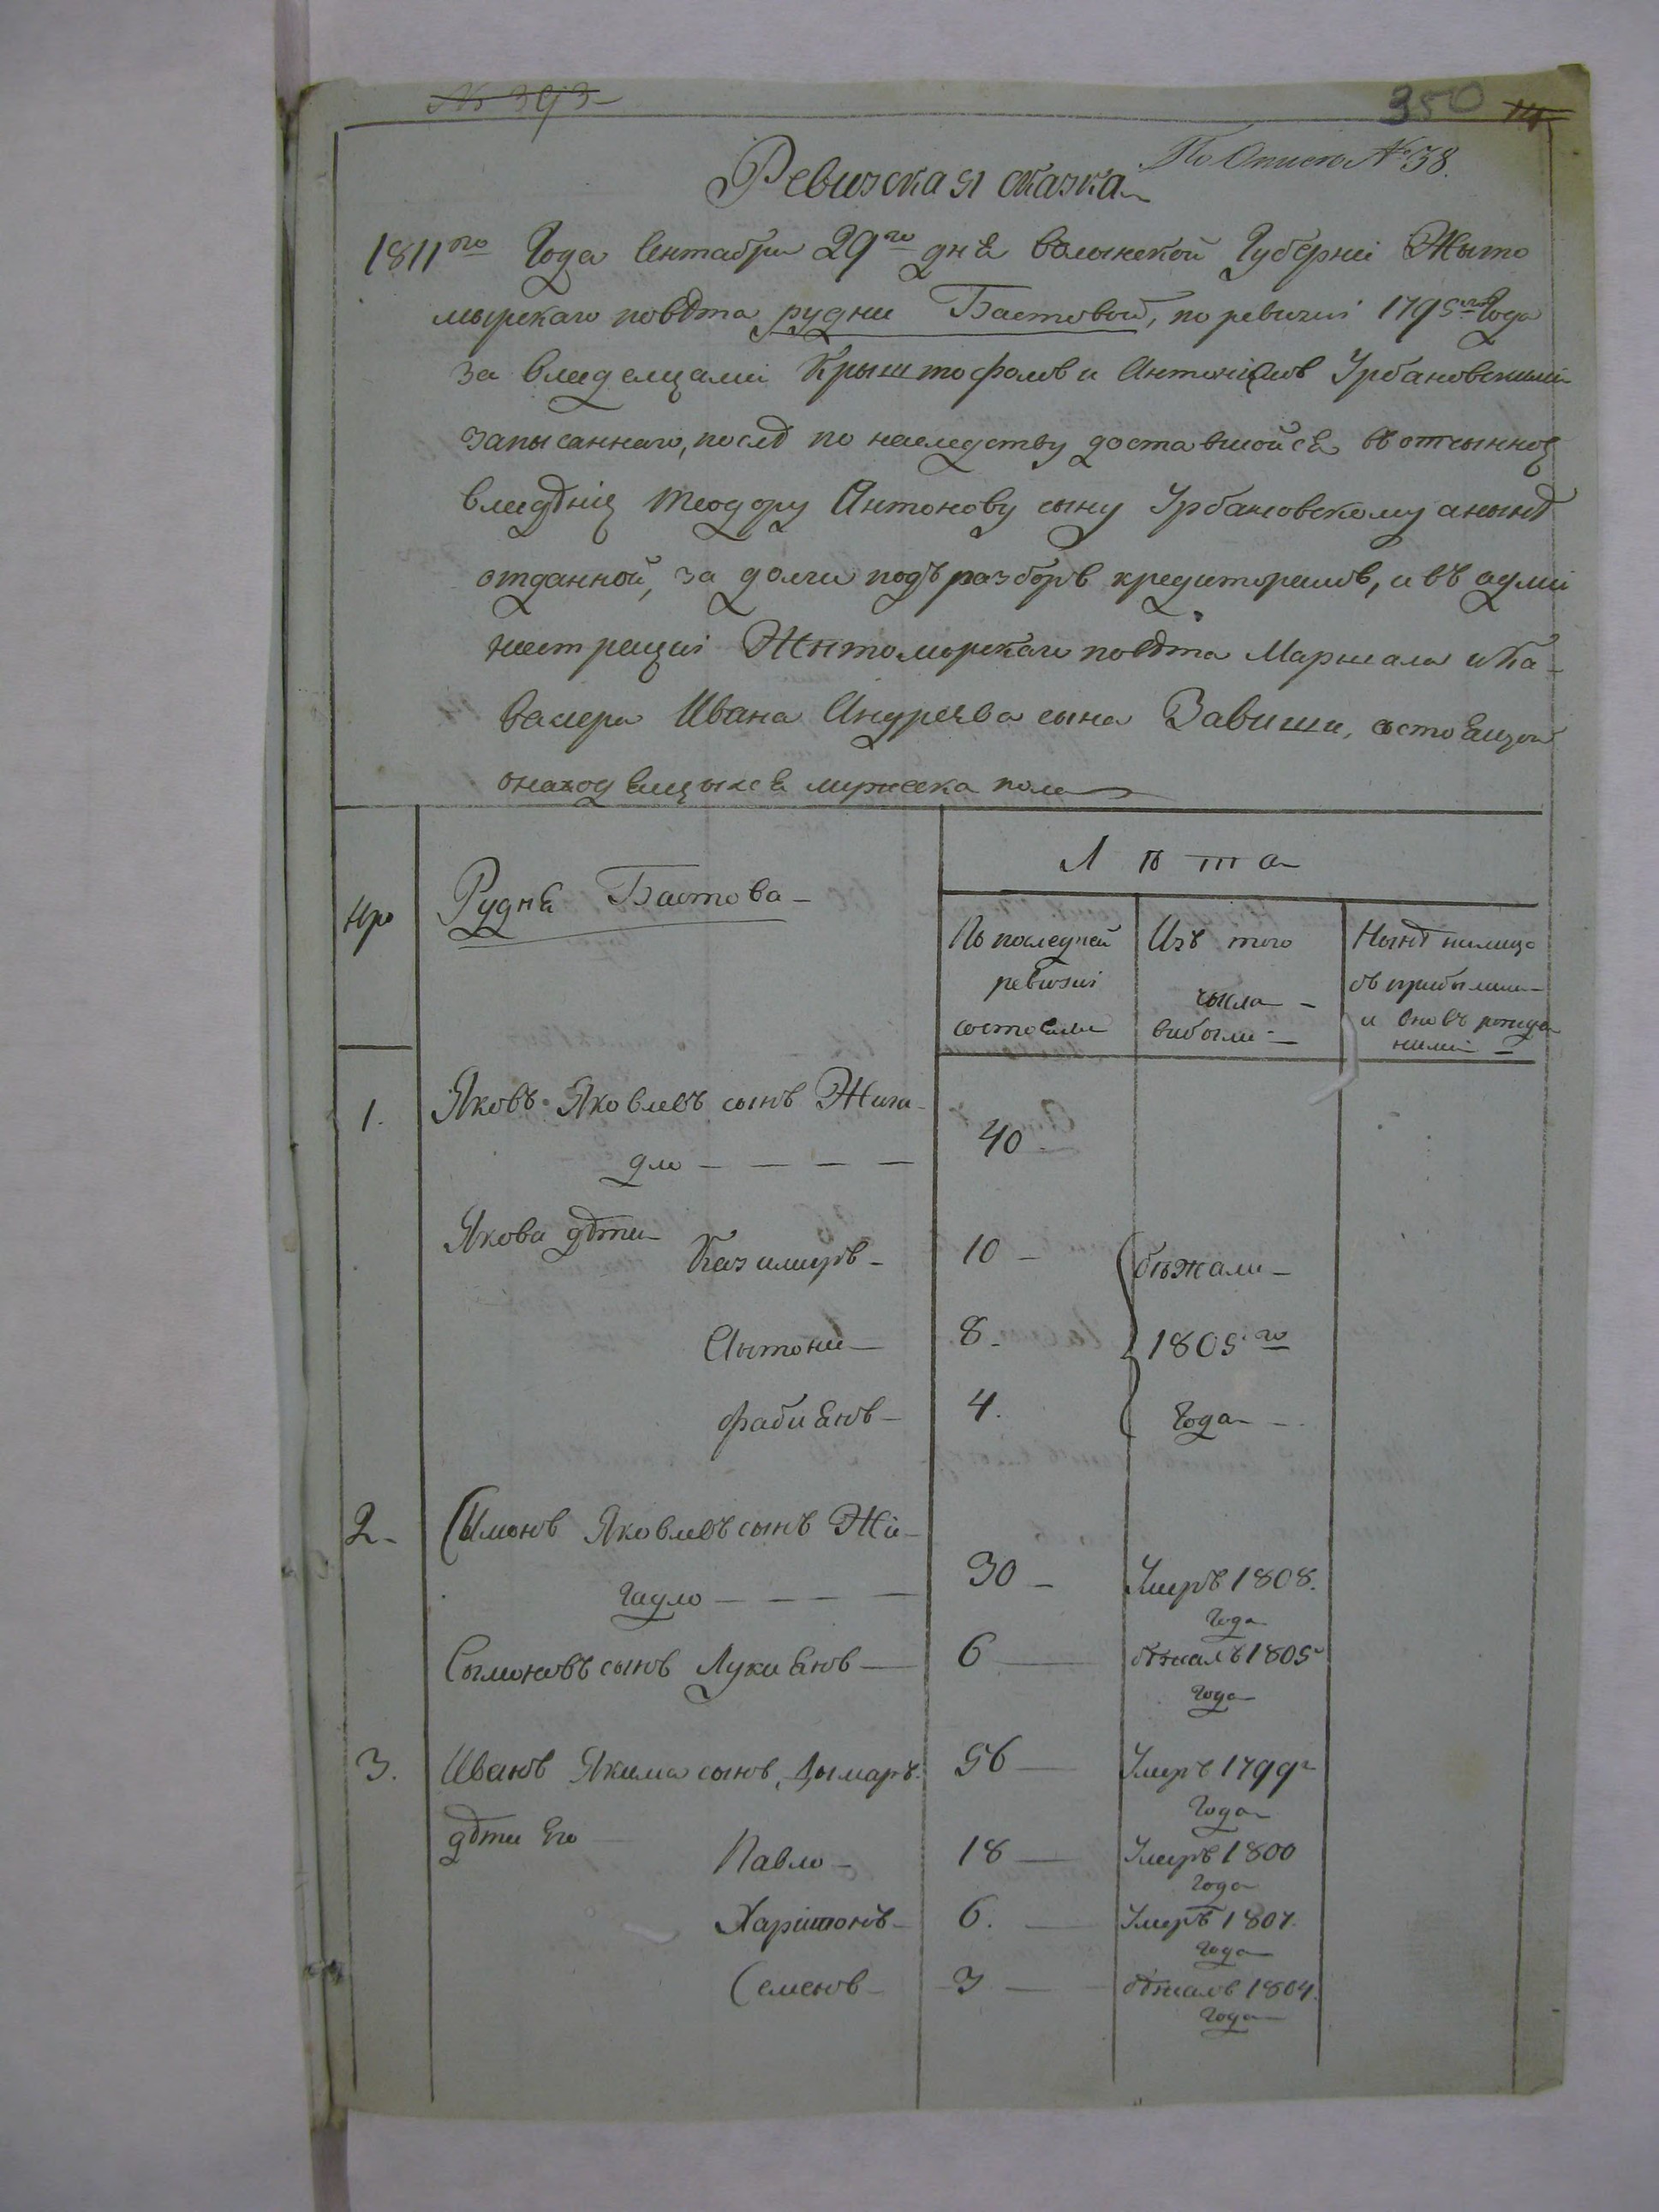 № 393
350
По описи № 38.
Ревизская сказка
1811го Года Сентабра 29го дня Волынской Губерніи Жыто
мырскаго повѣта рудни Бастовой, по ревизіи 1795го Года
за владелцами Крыштофомъ и Антоніемъ Урбановскими
запысаннаго, послѣ по наследству доставшойся вотчынное
владѣніе Теодору Антонову сыну Урбановскому а нынѣ
отданной, за долги подъ разборъ кредиторамъ, и въ адми
нистрацыи Жытомырскаго повѣта Маршала и Ка-
валера Ивана Андреява сына Завиши, состоящой
о находящыхся мужеска пола
Нро
Рудня Бастова
Лѣта
По последней ревизіи состояли
Изъ того чысла выбыли
Нынѣ налицо съ прибылими и вновъ рожденими
1. Яковъ Яковлевъ сынъ Жига-
дло 40
Якова дѣти Казимиръ 10 бѣжали
Антони 8 1805го
Фабиянъ 4. Года
2. Сымонъ Яковлевъ сынъ Жи-
гадло 30 Умеръ 1808. Года
Сымоновъ сынъ Лукиянъ 6 бѣжалъ 1805 года
3. Иванъ Якима сынъ, Дымаръ 56 Умеръ 1799 Года
дѣти Его Павло 18 Умеръ 1800 Года
Харитонъ 6. Умеръ 1807. года
Семенъ 3 бѣжалъ 1804. года